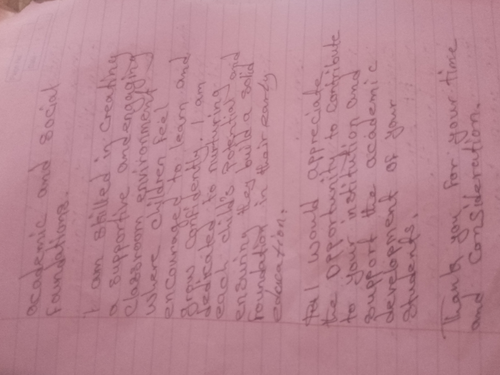 academic and social
foundations.
I am skilled in creating
a supportive and engaging
classroom environment
where children feel
encouraged to learn and
grow confidently. I am
dedicated to nurturing
each child's potential and
ensuring they build a solid
foundation in their early
education.
I would appreciate
the opportunity to contribute
to your institution and
support the academic
development of your
students.
Thank you for your time
and consideration.